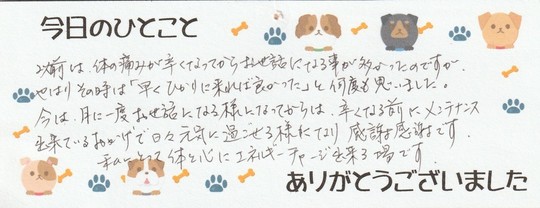 今日のひとこと
以前は、体の痛みが辛くなってからお世話になる事が多かったのですが、
やはりその時は「早くひかりに来れば良かった」と何度も思いました。
今は、月に一度お世話になる様になってからは、辛くなる前にメンテナンス
出来ているおかげで日々元気に過ごせる様になり感謝感謝です。
私にとって体と心にエネルギーチャージ出来る場です。
ありがとうございました